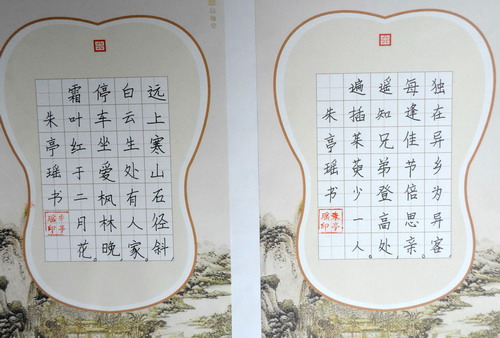 远上寒山石径斜
白云生处有人家
停车坐爱枫林晚
霜叶红于二月花
朱亭瑶书
朱亭瑶印
独在异乡为异客
每逢佳节倍思亲
遥知兄弟登高处
遍插茱萸少一人
朱亭瑶书
朱亭瑶印